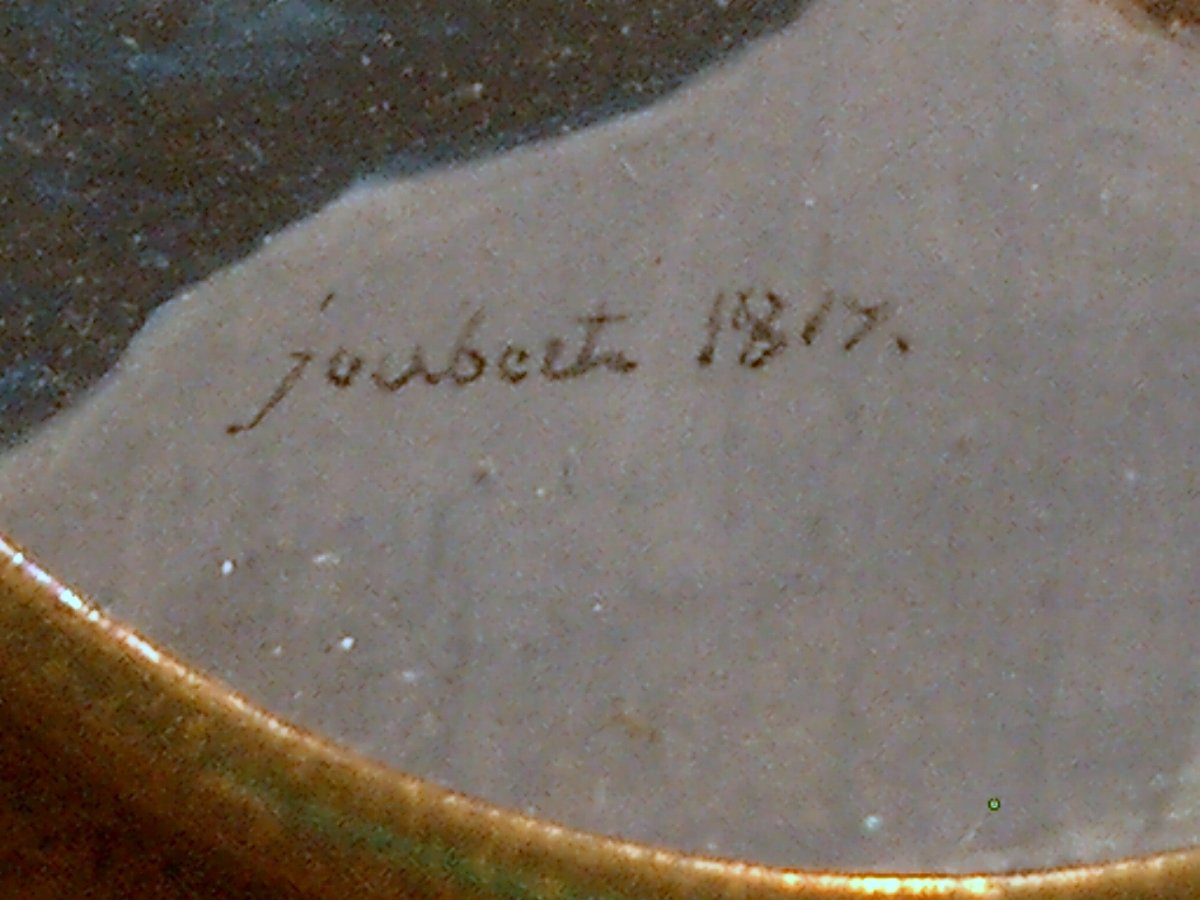 joubert 1817.